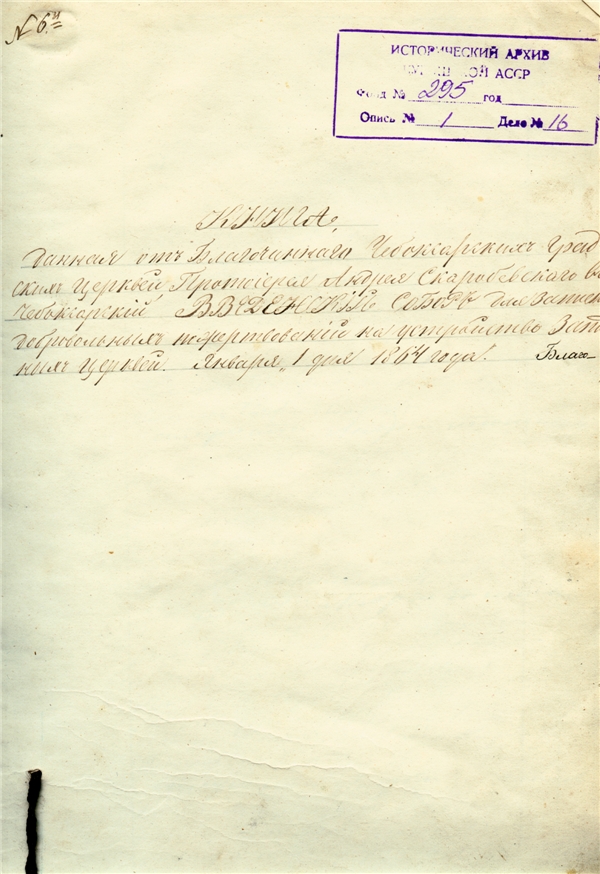 № 6.й
ИСТОРИЧЕСКИЙ АРХИВ
АССР
Фонд № 295 год
Опись № 1 Дело № 16
КНИГА,
данная отъ Благочиннаго Чебоксарскихъ Град
скихъ Церквей, Протоіерея Андрея Скаробевскаго въ
Чебоксарскій ВВЕДЕНСКІЙ СОБОРЪ для записки
добровольныхъ пожертвованій на устройство Запад
ныхъ Церквей. Января „1 дня 1864 года. Благо-